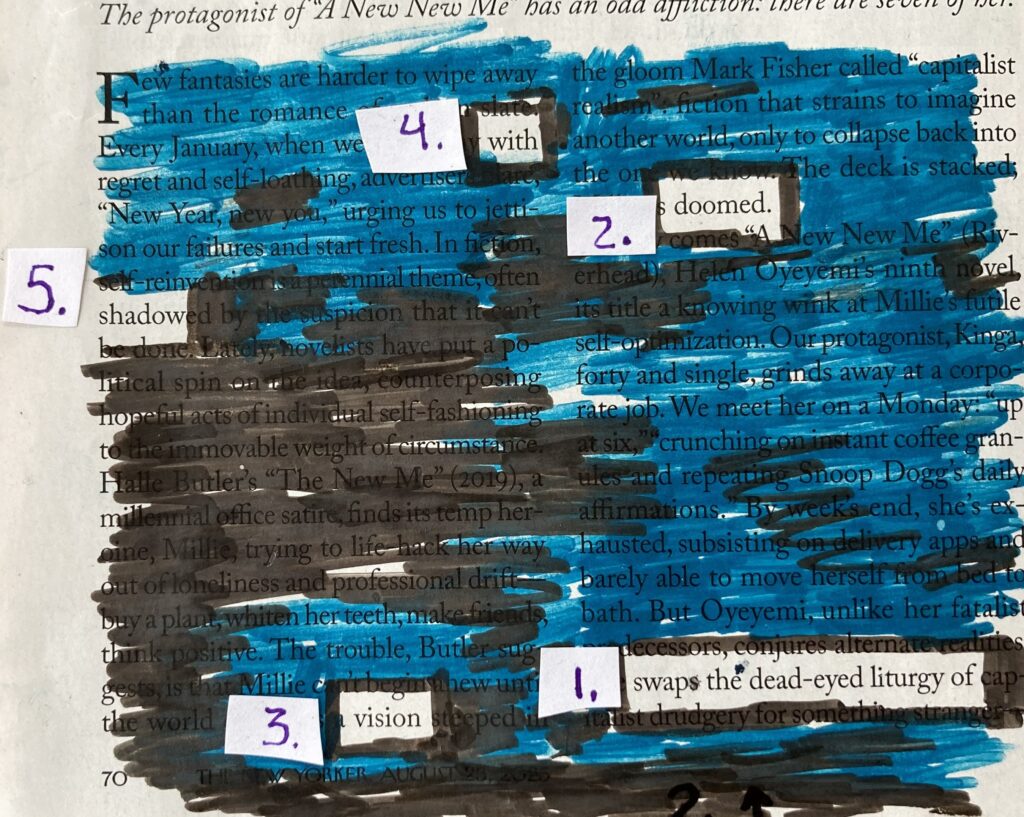 The protagonist of "A New New Me" has an odd affliction: there are seven of her.
Few fantasies are harder to wipe away
than the romance of slate.
4.
Every January, when we with
regret and self-loathing, advertisers blare,
"New Year, new you," urging us to jetti-
son our failures and start fresh. In fiction,
5.
self-reinvention is a perennial theme, often
shadowed by the suspicion that it can't
be done. Lately, novelists have put a po-
litical spin on the idea, counterposing
hopeful acts of individual self-fashioning
to the immovable weight of circumstance.
Halle Butler's "The New Me" (2019), a
millennial office satire, finds its temp her-
oine, Millie, trying to life-hack her way
out of loneliness and professional drift—
buy a plant, whiten her teeth, make friends,
think positive. The trouble, Butler sug-
gests, is that Millie can't begin anew until
the world
3.
a vision steeped in
70 THE NEW YORKER, AUGUST 25, 2025
the gloom Mark Fisher called "capitalist
realism": fiction that strains to imagine
another world, only to collapse back into
the one we know. The deck is stacked;
s doomed.
2.
comes "A New New Me" (Riv-
erhead), Helen Oyeyemi's ninth novel,
its title a knowing wink at Millie's futile
self-optimization. Our protagonist, Kinga,
forty and single, grinds away at a corpo-
rate job. We meet her on a Monday: "up
at six," "crunching on instant coffee gran-
ules and repeating Snoop Dogg's daily
affirmations." By week's end, she's ex-
hausted, subsisting on delivery apps and
barely able to move herself from bed to
bath. But Oyeyemi, unlike her fatalist
predecessors, conjures alternate realities
1.
swaps the dead-eyed liturgy of cap-
italist drudgery for something stranger
2.